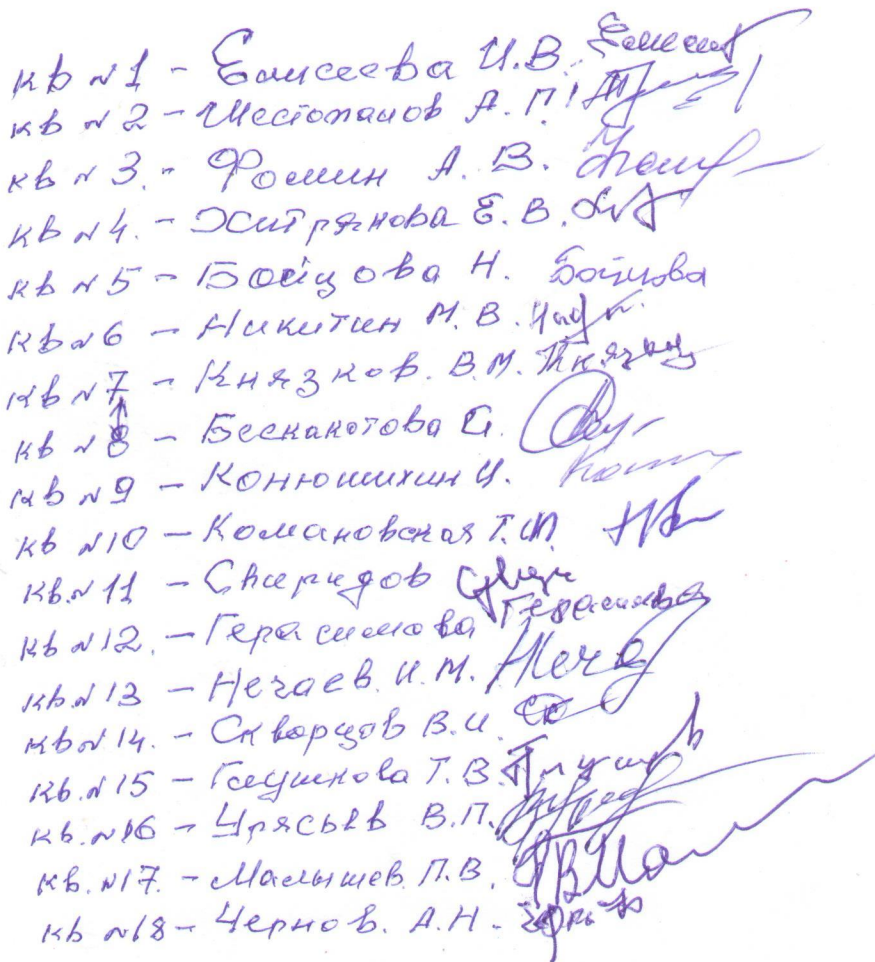 кв №1 - Елисеева И.В.
кв №2 - Шестопалов А.П.
кв №3. - Фомин А.В.
кв №4. - Хитрянова Е.В.
кв №5 - Бойцова Н. Бойцова
кв №6 - Никитин М.В.
кв №7 - Князков. В.М. Князьков
кв №8 - Бескакотова
кв №9 - Конюшихин И.
кв №10 - Комановская Т.
кв.№11 - Спиридов
кв №12. - Герасимова Герасимова
кв.№13 - Нечаев. И.М.
кв №14. - Скворцов В.И.
кв.№15 - Глушкова Т.В.
кв.№16 - Урясьев В.П.
кв.№17. - Малышев. П.В.
кв №18 - Чернов. А.Н.